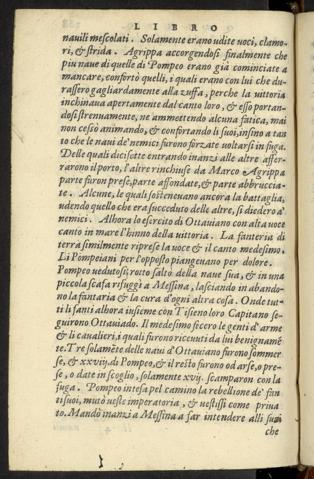 LIBRO
nauili mescolati. Solamente erano udite uoci, clamo-
ri, & strida. Agrippa accorgendosi finalmente che
piu naue di quelle di Pompeo erano già cominciate a
mancare, confortò quelli, i quali erano con lui che du-
rassero gagliardamente alla zuffa, perche la uittoria
inchinaua apertamente dal canto loro, & esso portan-
dosi strenuamente, ne ammettendo alcuna fatica, mai
non cessò animando, & confortando li suoi, insino a tan
to che le naui de' nemici furono forzate uoltarsi in fuga.
Delle quali dicisette entrando inanzi alle altre affer-
rarono il porto, l'altre rinchiuse da Marco Agrippa
parte furon prese, parte affondate, & parte abbruccia-
te. Alcune, le quali sosteneuano ancora la battaglia,
udendo quello che era succeduto delle altre, si diedero a'
nemici. Alhora lo esercito di Ottauiano con alta uoce
cantò in mare l'hinno della uittoria. La fanteria di
terrà similmente riprese la uoce & il canto medesimo.
Li Pompeiani per l'opposto piangeuano per dolore.
Pompeo uedutosi rotto saltò della naue sua, & in una
piccola scafa rifuggì a Messina, lasciando in abando-
no la fantaria & la cura d'ogni altra cosa. Onde tut-
ti li fanti alhora insieme con Tisieno loro Capitano se-
guirono Ottauiado. Il medesimo fecero le genti d'arme
& li caualieri, i quali furono riceuuti da lui benignamẽ
te. Tre solamẽte delle naui d'Ottauiano furono sommer
se, & xxviij. di Pompeo, & il resto furono od arse, o pre-
se, o date in scoglio, solamente xvij. scamparon con la
fuga. Pompeo intesa pel camino la rebellione de' fan
ti suoi, mutò ueste imperatoria, & uestissi come priua
to. Mandò inanzi a Messina a far intendere alli suoi
che